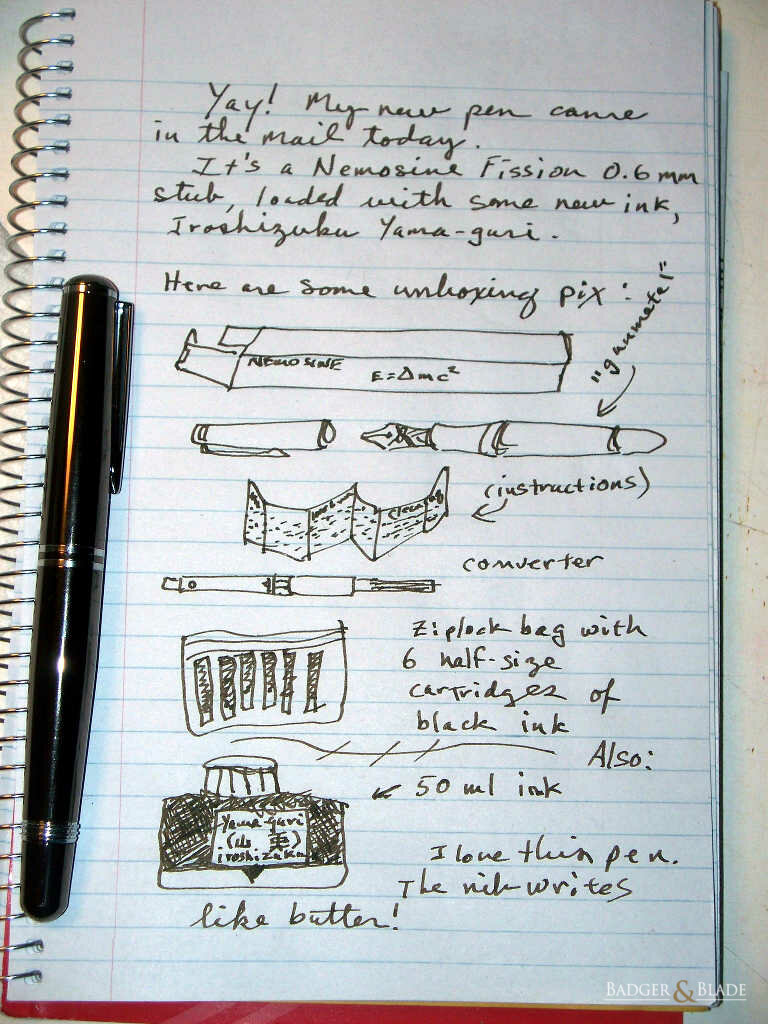 Yay! My new pen came
in the mail today.
It's a Nemosine Fission 0.6mm
stub, loaded with some new ink,
Iroshizuku Yama-guri.
Here are some unboxing pix:
"gunmetal"
NEMOSINE
E=Δmc²
(instructions)
cleaning
converter
Ziplock bag with
6 half-size
cartridges of
black ink
Also:
50 ml ink
Yama-guri
(山栗)
iroshizuku
I love this pen.
The nib writes
like butter!
BADGER & BLADE